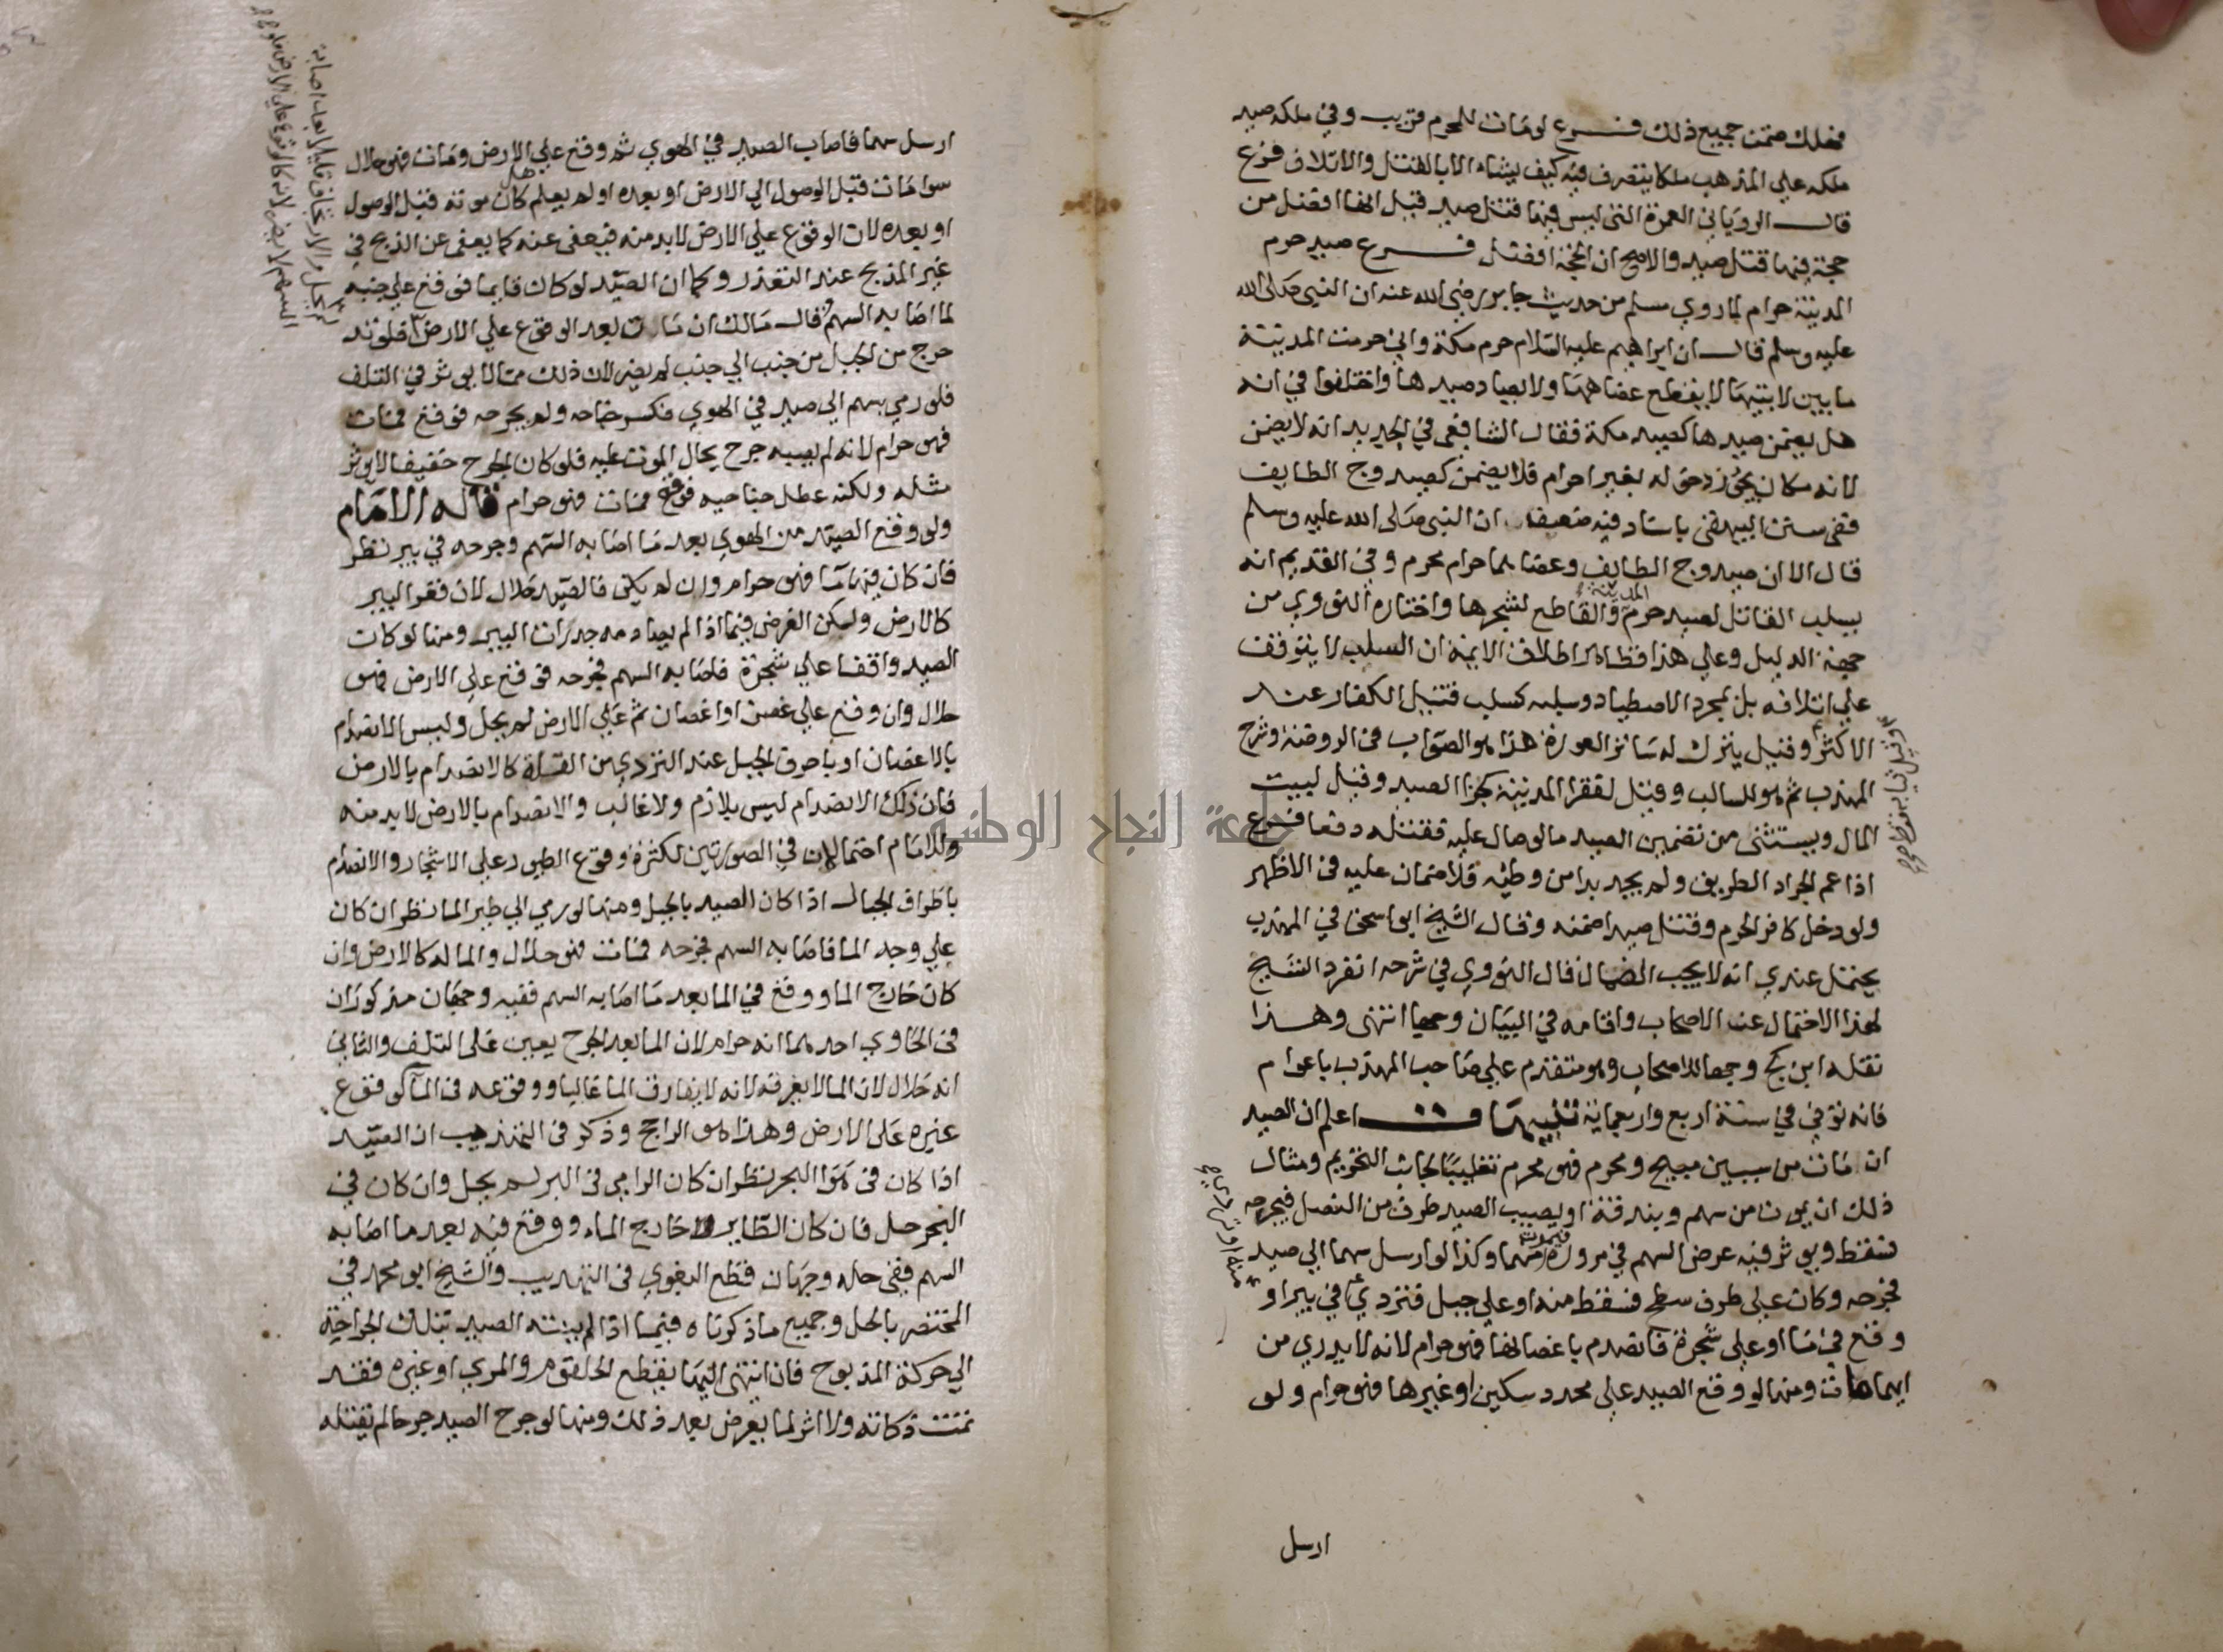 فهلك ضمن جميع ذلك فرع لو مات للمحرم قريب وفي ملكه صيد
ملكه علي المذهب ملكا يتصرف فيه كيف يشاء الا بالقتل والاتلاف فرع
قال الروياني العمرة التي ليس فيها قتل صيد قيل انها افضل من
حجة فيها قتل صيد والاصح ان الحجة افضل فرع صيد حرم
المدينة حرام لما روي مسلم من حديث جابر رضي الله عنه ان النبي صلى الله
عليه وسلم قال ان ابراهيم عليه السلام حرم مكة واني حرمت المدينة
ما بين لابتيها لا يقطع عضاهها ولا يصاد صيدها واختلفوا في انه
هل يضمن صيدها كصيد مكة فقال الشافعي في الجديد انه لا يضمن
لانه مكان يجوز دخوله بغير احرام فلا يضمن كصيد وج الطايف
ففي سنن البيهقي باسناد فيه ضعيف ان النبي صلى الله عليه وسلم
قال الا ان صيد وج الطايف وعضاهها حرام محرم وفي القديم انه
يسلب القاتل لصيد حرم المدينة والقاطع لشجرها واختاره النووي من
جهة الدليل وعلي هذا فظاهر اطلاق الايمة ان السلب لا يتوقف
علي اتلافه بل بمجرد الاصطياد وسلبه كسلب قتيل الكفار عند
الاكثر وقيل يترك له ساتر العورة هذا هو الصواب في الروضة وشرح
المهذب ثم هو للسالب وقيل لفقرا المدينة كجزا الصيد وقيل لبيت
المال ويستثنى من تضمين الصيد ما لو صال عليه فقتله دفعا فرع
اذا عم الجراد الطريق ولم يجد بدا من وطئه فلا ضمان عليه في الاظهر
ولو دخل كافر الحرم وقتل صيدا ضمنه وقال الشيخ ابو اسحق في المهذب
يحتمل عندي انه لا يجب الضمان قال النووي في شرحه انفرد الشيخ
بهذا الاحتمال عن الاصحاب واقامه في البيان وجها انتهى وهذا
نقله ابن كج وجها للاصحاب وهو متقدم علي صاحب المهذب باعوام
فانه توفي في سنة اربع واربعماية تنبيهات اعلم ان الصيد
ان مات من سببين مبيح ومحرم فهو محرم تغليبا لجانب التحريم ومثال
ذلك ان يموت من سهم وبندقة او يصيب الصيد طرف من النصل فيجرحه
ويوثر فيه عرض السهم في مروره فيموت منهما وكذا لو ارسل سهما الي صيد
فجرحه وكان علي طرف سطح فسقط منه او علي جبل فتردي في بير او
وقع في ما او علي شجرة فانصدم باغصانها فهو حرام لانه لا يدري من
ايهما مات ومنها لو وقع الصيد علي محدد سكين او غيرها فهو حرام ولو
ارسل
ارسل سهما فاصاب الصيد في الهوي ثم وقع علي الارض ومات فهو حلال
سوا مات قبل الوصول الي الارض او بعده او لم يعلم هل كان موته قبل الوصول
او بعده لان الوقوع علي الارض لا بد منه فيعفى عنه كما يعفى عن الذبح في
غير المذبح عند التعذر وكما ان الصيد لو كان قايما فوقع علي جنبه
لما اصابه السهم قال مالك ان مات بعد الوقوع علي الارض فلو تد
حرج من الجبل من جنب الي جنب لم يضر لان ذلك مما لا يوثر في التلف
فلو رمي بسهم الي صيد في الهوي فكسر جناحه ولم يجرحه فوقع فمات
فهو حرام لانه لم يصبه جرح يحال الموت عليه فلو كان الجرح خفيفا لا يوثر
مثله ولكنه عطل جناحيه فوقع فمات فهو حرام قاله الامام
ولو وقع الصيد من الهوي بعد ما اصابه السهم وجرحه في بير نظر
فان كان فيها ما فهو حرام وان لم يكن فالصيد حلال لان قعر البير
كالارض وليكن الفرض فيما اذا لم يصادمه جدران البير ومنها لو كان
الصيد واقفا علي شجرة فاصابه السهم فجرحه فوقع علي الارض فهو
حلال وان وقع علي غصن او اغصان ثم علي الارض لم يحل وليس الانصدام
بالاغصان او باحرف الجبل عند التردي من القلة كالانصدام بالارض
فان ذلك الانصدام ليس بلازم ولا غالب والانصدام بالارض لا بد منه
وللامام احتمالان في الصورتين لكثرة وقوع الطيور علي الاشجار والانصدام
باطراف الجبال اذا كان الصيد بالجبل ومنها لو رمي الي طير الما نظر ان كان
علي وجه الما فاصابه السهم فجرحه فمات فهو حلال والما له كالارض وان
كان خارج الما ووقع في الما بعد ما اصابه السهم ففيه وجهان مذكوران
في الحاوي احدهما انه حرام لان الما بعد الجرح يعين على التلف والثاني
انه حلال لان الما لا يغرقه لانه لا يفارق الما غالبا ووقوعه في الما كوقوع
غيره على الارض وهذا هو الراجح وذكر في التهذيب ان الصيد
اذا كان في هوا البحر نظر ان كان الرامي في البر لم يحل وان كان في
البحر حل فان كان الطاير خارج الماء ووقع فيه بعد ما اصابه
السهم ففي حله وجهان فقطع البغوي في التهذيب والشيخ ابو محمد في
المختصر بالحل وجميع ما ذكرناه فيما اذا لم ينته الصيد بتلك الجراحة
الي حركة المذبوح فان انتهى اليها بقطع الحلقوم والمري او غيره فقد
تمت ذكاته ولا اثر لما يعرض بعد ذلك ومنها لو جرح الصيد جرحا لم يقتله
جامعة النجاح الوطنية